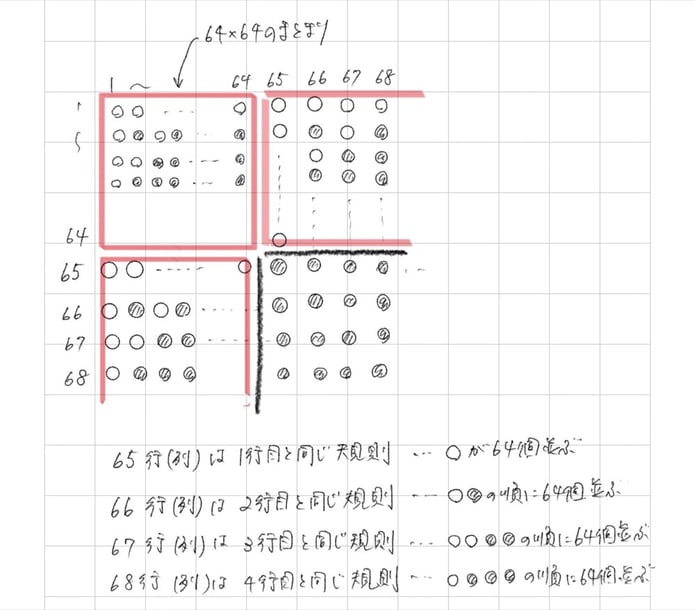 64×64のまとまり
1 〜 64 65 66 67 68
1
〜
64
65
66
67
68
65行(列)は1行目と同じ規則 … ○が64個並ぶ
66行(列)は2行目と同じ規則 … ○◍の順に64個並ぶ
67行(列)は3行目と同じ規則 … ○○◍◍の順に64個並ぶ
68行(列)は4行目と同じ規則 … ○◍◍◍の順に64個並ぶ